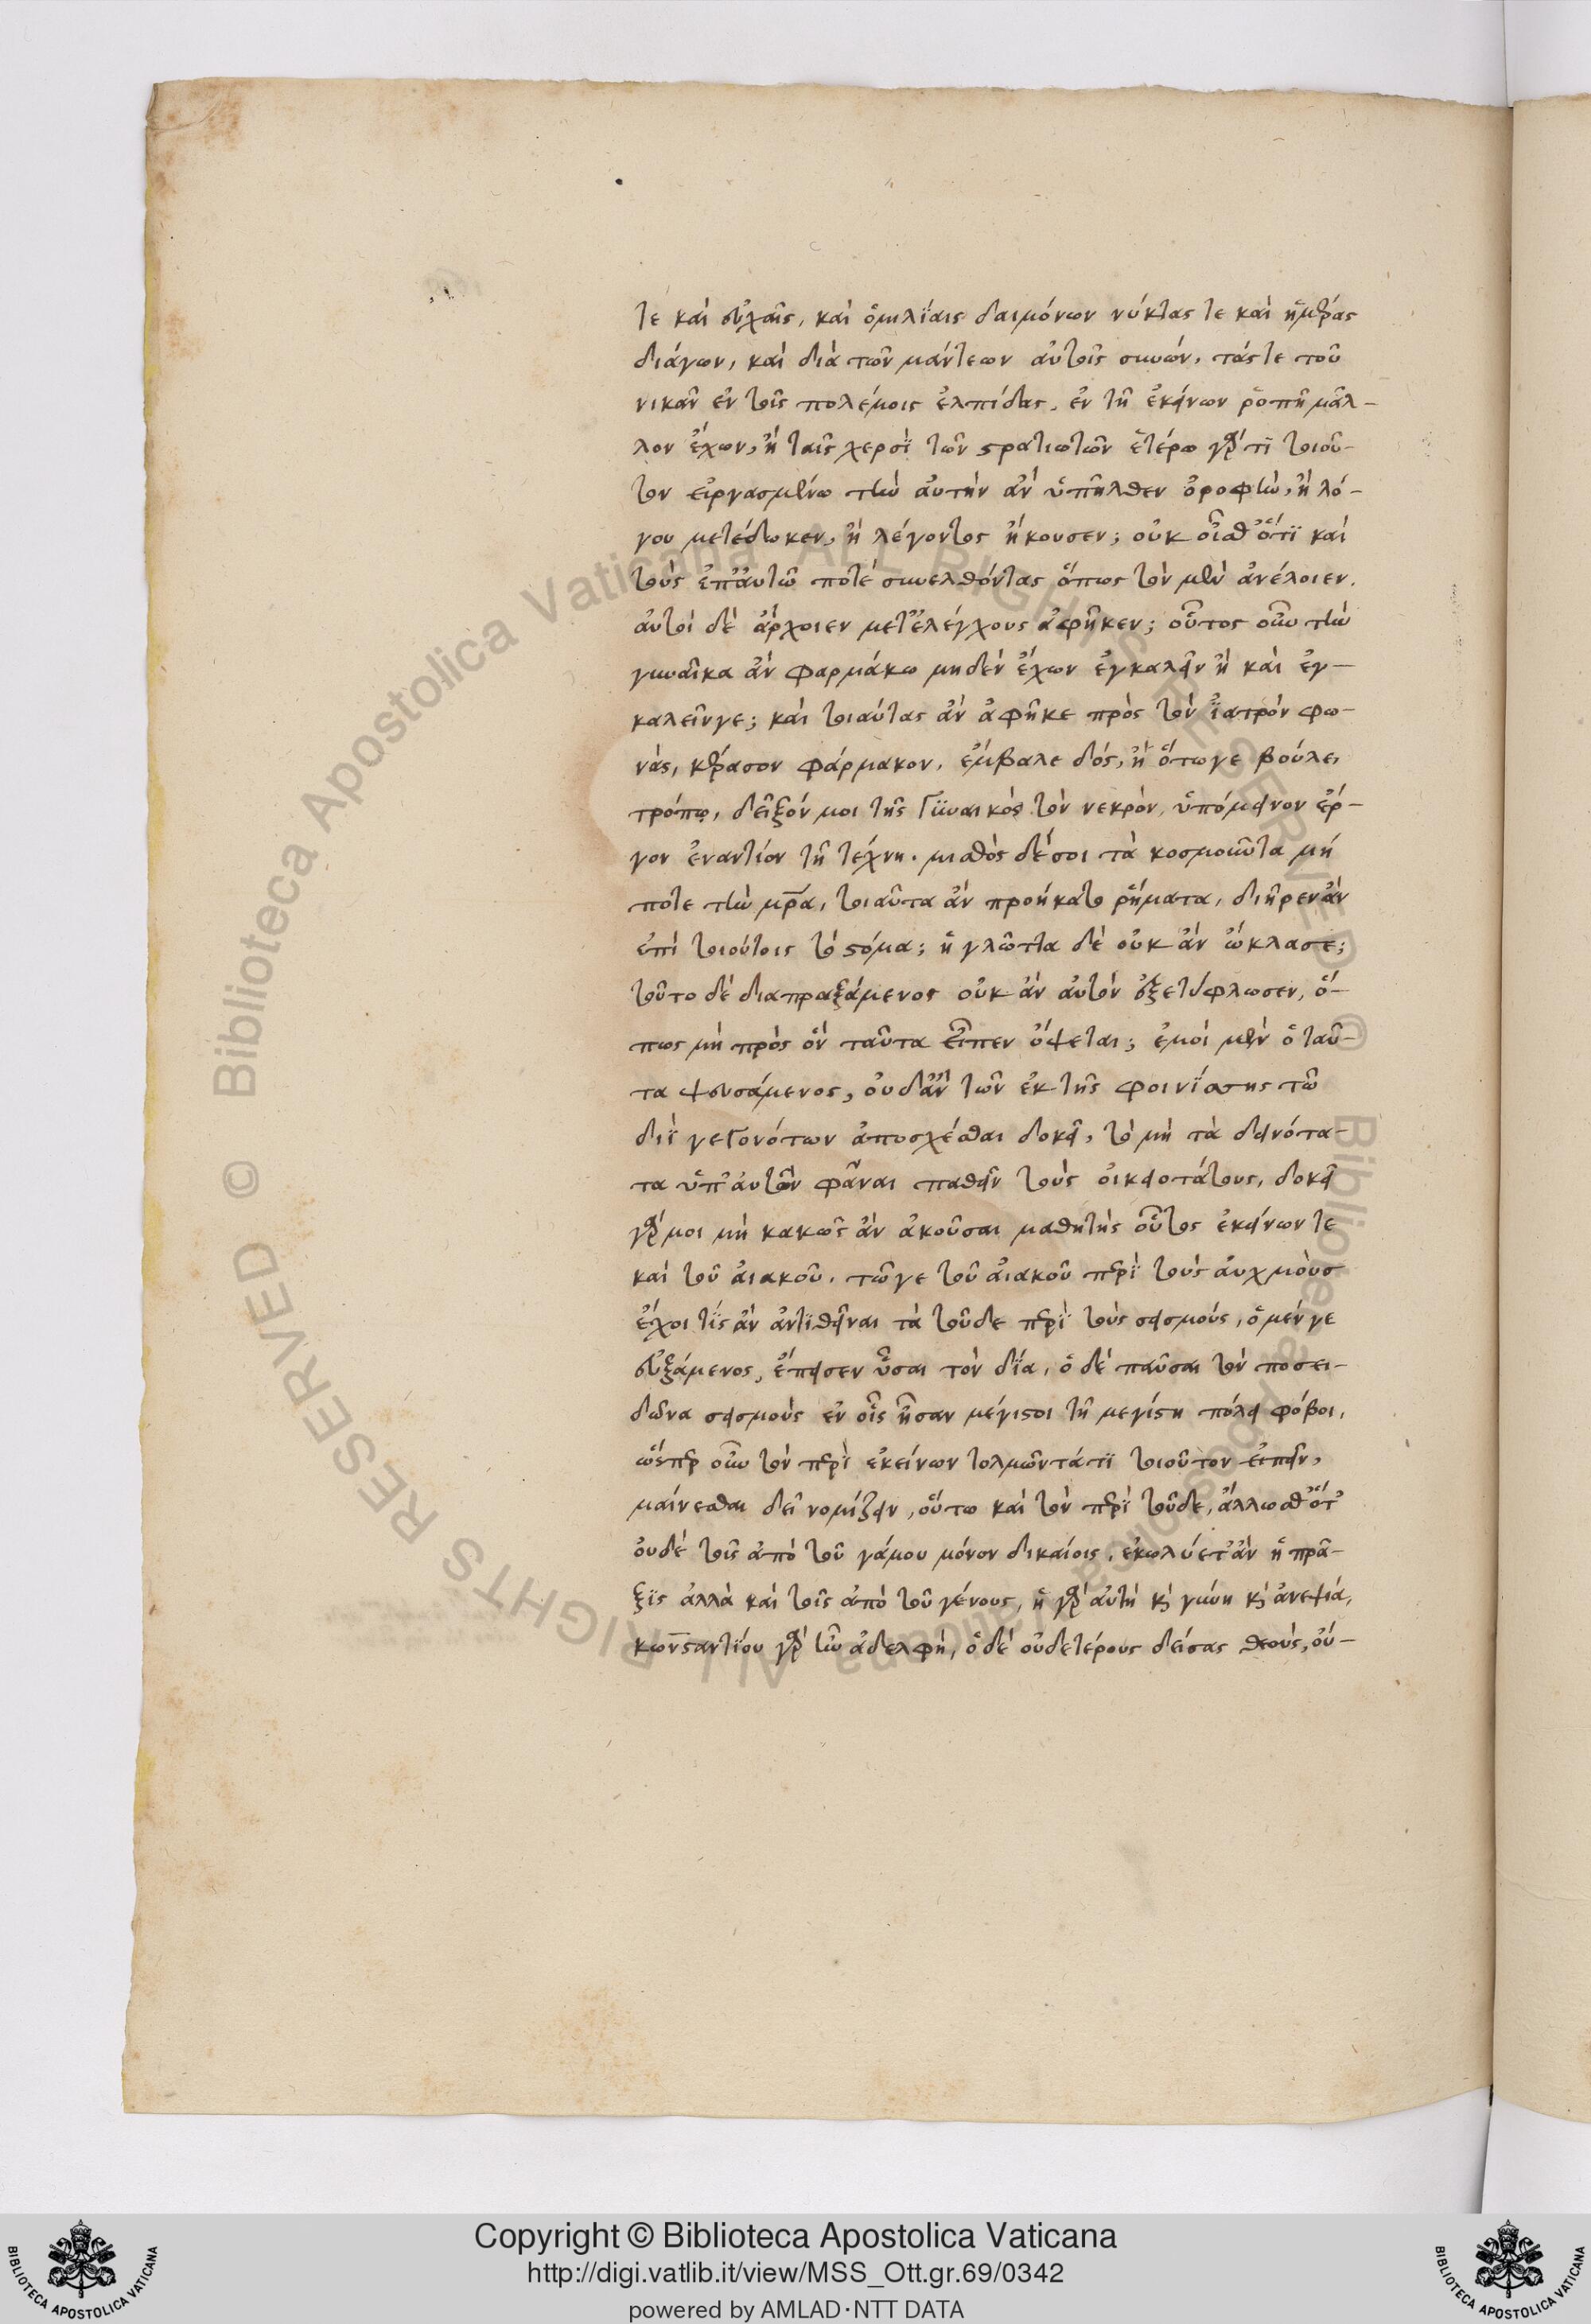 τε καὶ εὐχαῖς, καὶ ὁμιλίαις δαιμόνων νύκτας τε καὶ ἡμέρας
διάγων, καὶ διὰ τῶν μάντεων αὐτοῖς συνὼν, τάς τε τοῦ
νικᾶν ἐν τοῖς πολέμοις ἐλπίδας, ἐν τῇ ἐκείνων ῥοπῇ μᾶλ-
λον ἔχων, ἢ ταῖς χερσὶ τῶν στρατιωτῶν ἑτέρω γάρ τι τοιοῦ-
τον εἰργασμένω τὴν αὐτὴν ἂν ὑπῆλθεν ὀροφὴν, ἢ λό-
γου μετέδωκεν, ἢ λέγοντος ἤκουσεν; οὐκ οἶσθ' ὅτι καὶ
τοὺς ἐπ' αὐτῶ ποτὲ συνελθόντας ὅπως τὸν μὲν ἀνέλοιεν,
αὐτοὶ δὲ ἄρχοιεν μετ' ἐλέγχους ἀφῆκεν; οὗτος οὖν τὴν
γυναῖκα ἂν φαρμάκω μηδὲν ἔχων ἐγκαλεῖν ἢ καὶ ἐγ-
καλεῖν γε; καὶ τοιαύτας ἂν ἀφῆκε πρὸς τὸν ἰατρὸν φω-
νάς, κέρασον φάρμακον, ἔμβαλε δός, ἢ ὅτω γε βούλει
τρόπῳ, δεῖξόν μοι τῆς γυναικὸς τὸν νεκρὸν, ὑπόμεινον ἔρ-
γον ἐναντίον τῇ τέχνη. μισθὸς δέ σοι τὰ κοσμοῦντα μή
ποτε τὴν μητέρα, τοιαῦτα ἂν προήκατο ῥήματα, διῆρεν ἂν
ἐπὶ τοιούτοις τὸ στόμα; ἡ γλῶττα δὲ οὐκ ἂν ὤκλασε;
τοῦτο δὲ διαπραξάμενος οὐκ ἂν αὐτὸν ἐξετύφλωσεν, ὅ-
πως μὴ πρὸς ὃν ταῦτα εἶπεν ὄψεται; ἐμοὶ μὲν ὁ ταῦ-
τα ψευσάμενος, οὐδ' ἂν τῶν ἐκ τῆς φοινίσσης τῶ
διῒ γεγονότων ἀποσχέσθαι δοκεῖ, τὸ μὴ τὰ δεινότα-
τα ὑπ' αὐτῶν φᾶναι παθεῖν τοὺς οἰκειοτάτους, δοκεῖ
γάρ μοι μὴ κακῶς ἂν ἀκοῦσαι μαθητὴς οὗτος ἐκείνων τε
καὶ τοῦ αἰακοῦ. τῶ γε τοῦ αἰακοῦ περὶ τοὺς αὐχμοὺς
ἔχοι τίς ἂν ἀντιθεῖναι τὰ τοῦδε περὶ τοὺς σεισμούς, ὁ μέν γε
εὐξάμενος, ἔπεισεν ὗσαι τὸν δία, ὁ δὲ παῦσαι τὸν ποσει-
δῶνα σεισμοὺς ἐν οἷς ἦσαν μέγιστοι τῇ μεγίστη πόλει φόβοι,
ὥσπερ οὖν τὸν περὶ ἐκείνων τολμῶντά τι τοιοῦτον εἰπεῖν,
μαίνεσθαι δεῖ νομίζειν, οὕτω καὶ τὸν περὶ τοῦδε, ἄλλως θ' ὅτ'
οὐδὲ τοῖς ἀπὸ τοῦ γάμου μόνον δικαίοις, ἐκωλύετ' ἂν ἡ πρᾶ-
ξις ἀλλὰ καὶ τοῖς ἀπὸ τοῦ γένους, ἡ γὰρ αὐτὴ καὶ γυνὴ καὶ ἀνεψιά,
κωνσταντίου γὰρ ἦν ἀδελφή, ὁ δὲ οὐδετέρους δείσας θεούς, οὐ-
Copyright © Biblioteca Apostolica Vaticana
http://digi.vatlib.it/view/MSS_Ott.gr.69/0342
powered by AMLAD·NTT DATA